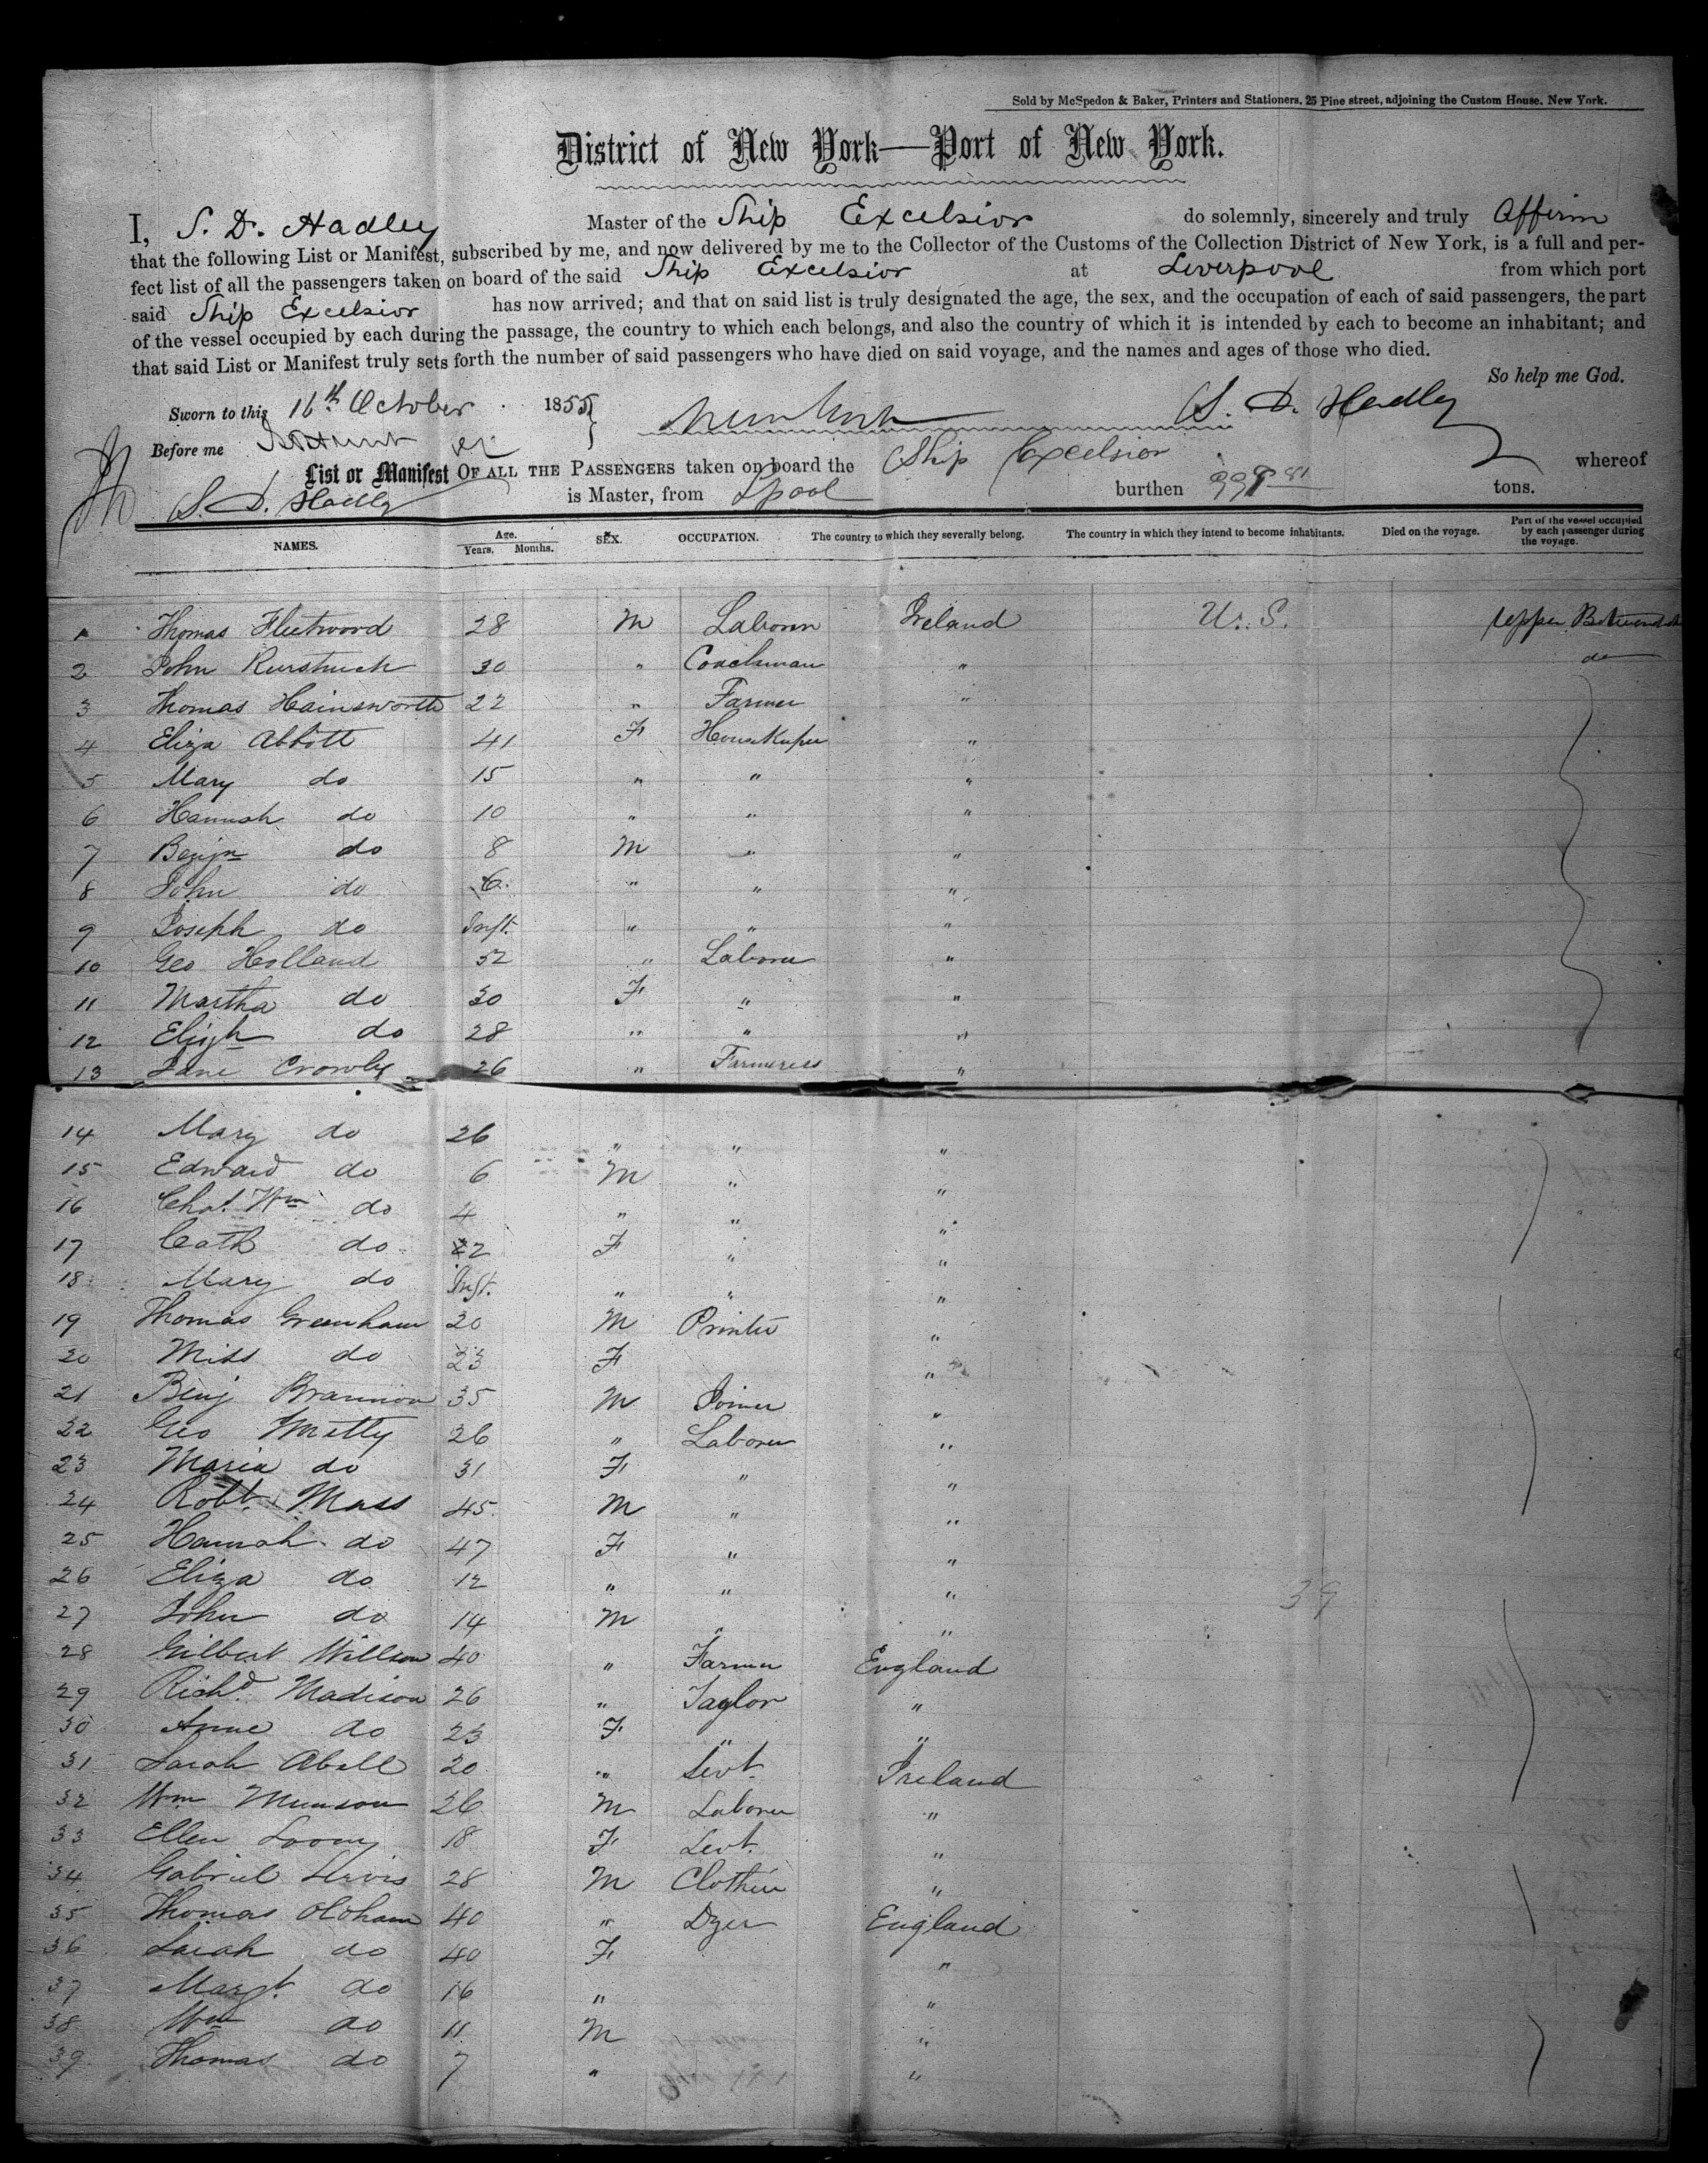 Sold by McSpedon & Baker, Printers and Stationers, 25 Pine street, adjoining the Custom House, New York.
District of New York—Port of New York.
I, S. D. Hadley Master of the Ship Excelsior do solemnly, sincerely and truly Affirm
that the following List or Manifest, subscribed by me, and now delivered by me to the Collector of the Customs of the Collection District of New York, is a full and per-
fect list of all the passengers taken on board of the said Ship Excelsior at Liverpool from which port
said Ship Excelsior has now arrived; and that on said list is truly designated the age, the sex, and the occupation of each of said passengers, the part
of the vessel occupied by each during the passage, the country to which each belongs, and also the country of which it is intended by each to become an inhabitant; and
that said List or Manifest truly sets forth the number of said passengers who have died on said voyage, and the names and ages of those who died.
So help me God.
Sworn to this 16th October 1855 } New York S. D. Hadley
Before me
List or Manifest OF ALL THE PASSENGERS taken on board the Ship Excelsior whereof
S. D. Hadley is Master, from Lpool burthen 999 81 tons.
NAMES. Age. Years. Months. SEX. OCCUPATION. The country to which they severally belong. The country in which they intend to become inhabitants. Died on the voyage. Part of the vessel occupied by each passenger during the voyage.
Thomas Fleetwood 28 M Laborer Ireland U. S. Upper
2 John 30 " Coachman " do
3 Thomas Hainsworth 22 " Farmer "
4 Eliza Abbott 41 F Housekeeper "
5 Mary do 15 " " "
6 Hannah do 10 " " "
7 Benjn do 8 M " "
8 John do 6 " " "
9 Joseph do Inft. " " "
10 Geo Holland 32 " Laborer "
11 Martha do 30 F " "
12 do 28 " " "
13 Jane Crowly 26 " Farmeress "
14 Mary do 26 " " "
15 Edward do 6 M " "
16 Chas. Wm do 4 " " "
17 Cath do 22 F " "
18 Mary do Inft. " " "
19 Thomas Greenham 20 M Printer "
20 Miss do 23 F "
21 Benj Brannon 35 M Joiner "
22 Geo 26 " Laborer "
23 Maria do 31 F " "
24 Robt. Mass 45 M " "
25 Hannah do 47 F " "
26 Eliza do 12 " " "
27 John do 14 M " " 39
28 Gilbert Willson 40 " Farmer England
29 Richd. Madison 26 " Taylor "
30 Anne do 23 F " "
31 Sarah Abell 20 " Sevt. Ireland
32 Wm Munson 26 M Laborer "
33 Ellen 18 F Sevt. "
34 Gabriel 28 M Clothier "
35 Thomas Oldham 40 " Dyer England
36 Sarah do 40 F "
37 Margt. do 16 " "
38 Wm do 11 M "
39 Thomas do 7 " "